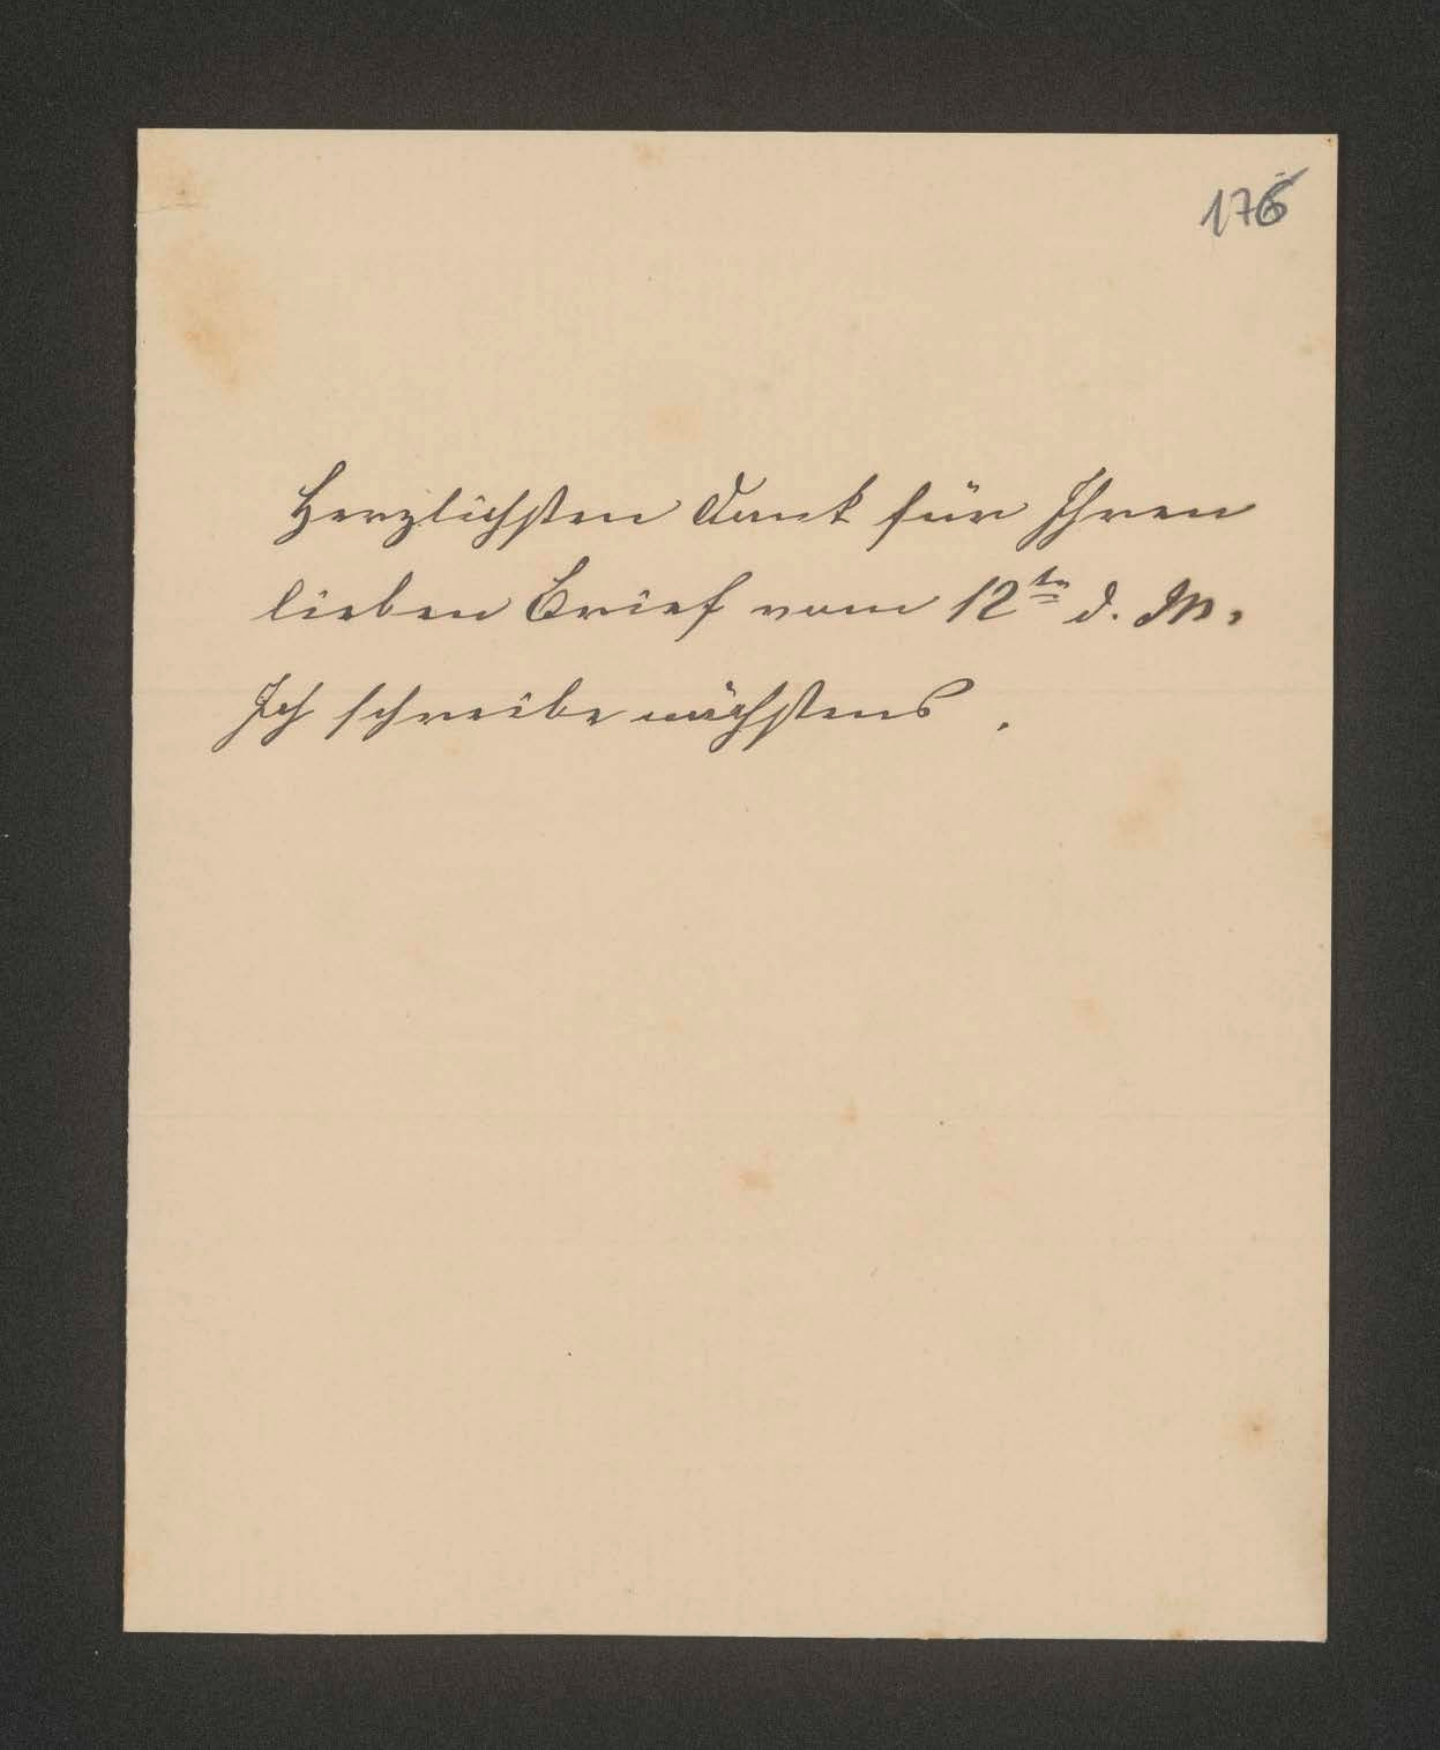 176
Herzlichsten Dank für Ihren
lieben Brief vom 12ten d. M.
Ich schreibe nächstens.